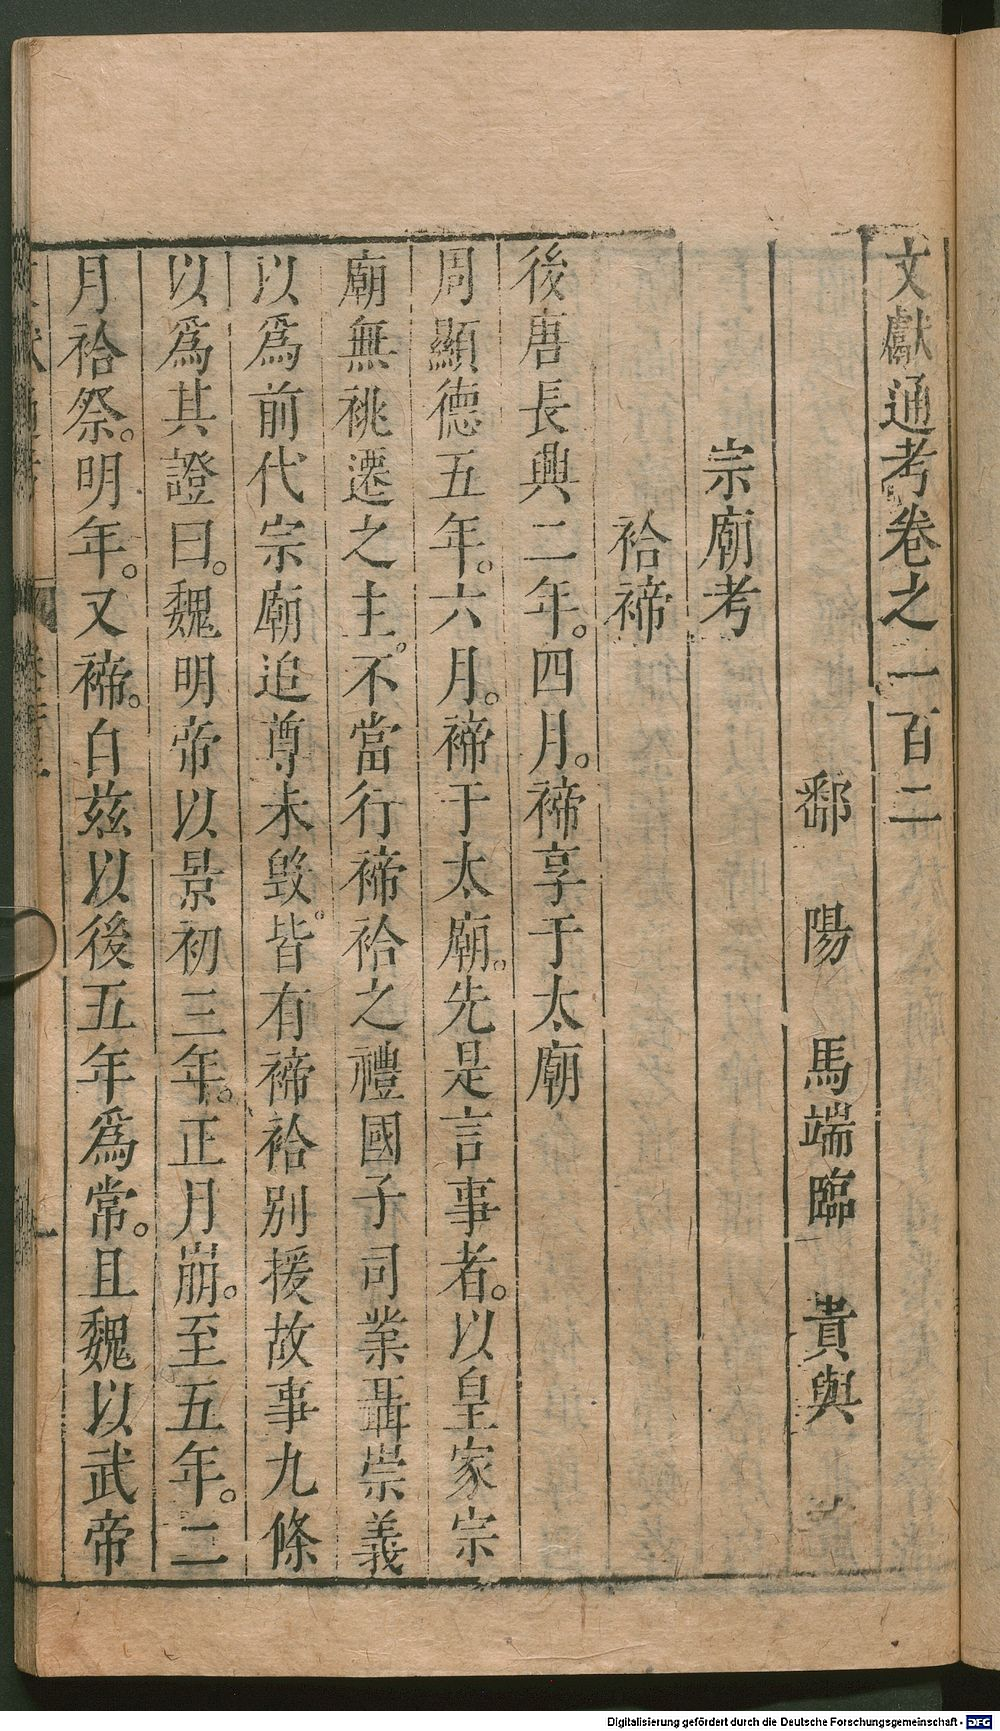 文獻通考卷之一百二
鄱陽馬端臨貴與
宗廟考
祫禘
後唐長興二年。四月。禘享于太廟
周顯德五年。六月。禘于太廟。先是言事者。以皇家宗
廟無祧遷之主。不當行禘祫之禮國子司業聶崇義
以爲前代宗廟追尊未毀。皆有禘祫别援故事九條
以爲其證曰。魏明帝以景初三年。正月崩。至五年。二
月祫祭。明年。又禘。自茲以後五年爲常。且魏以武帝
Digitalisierung gefördert durch die Deutsche Forschungsgemeinschaft - DFG